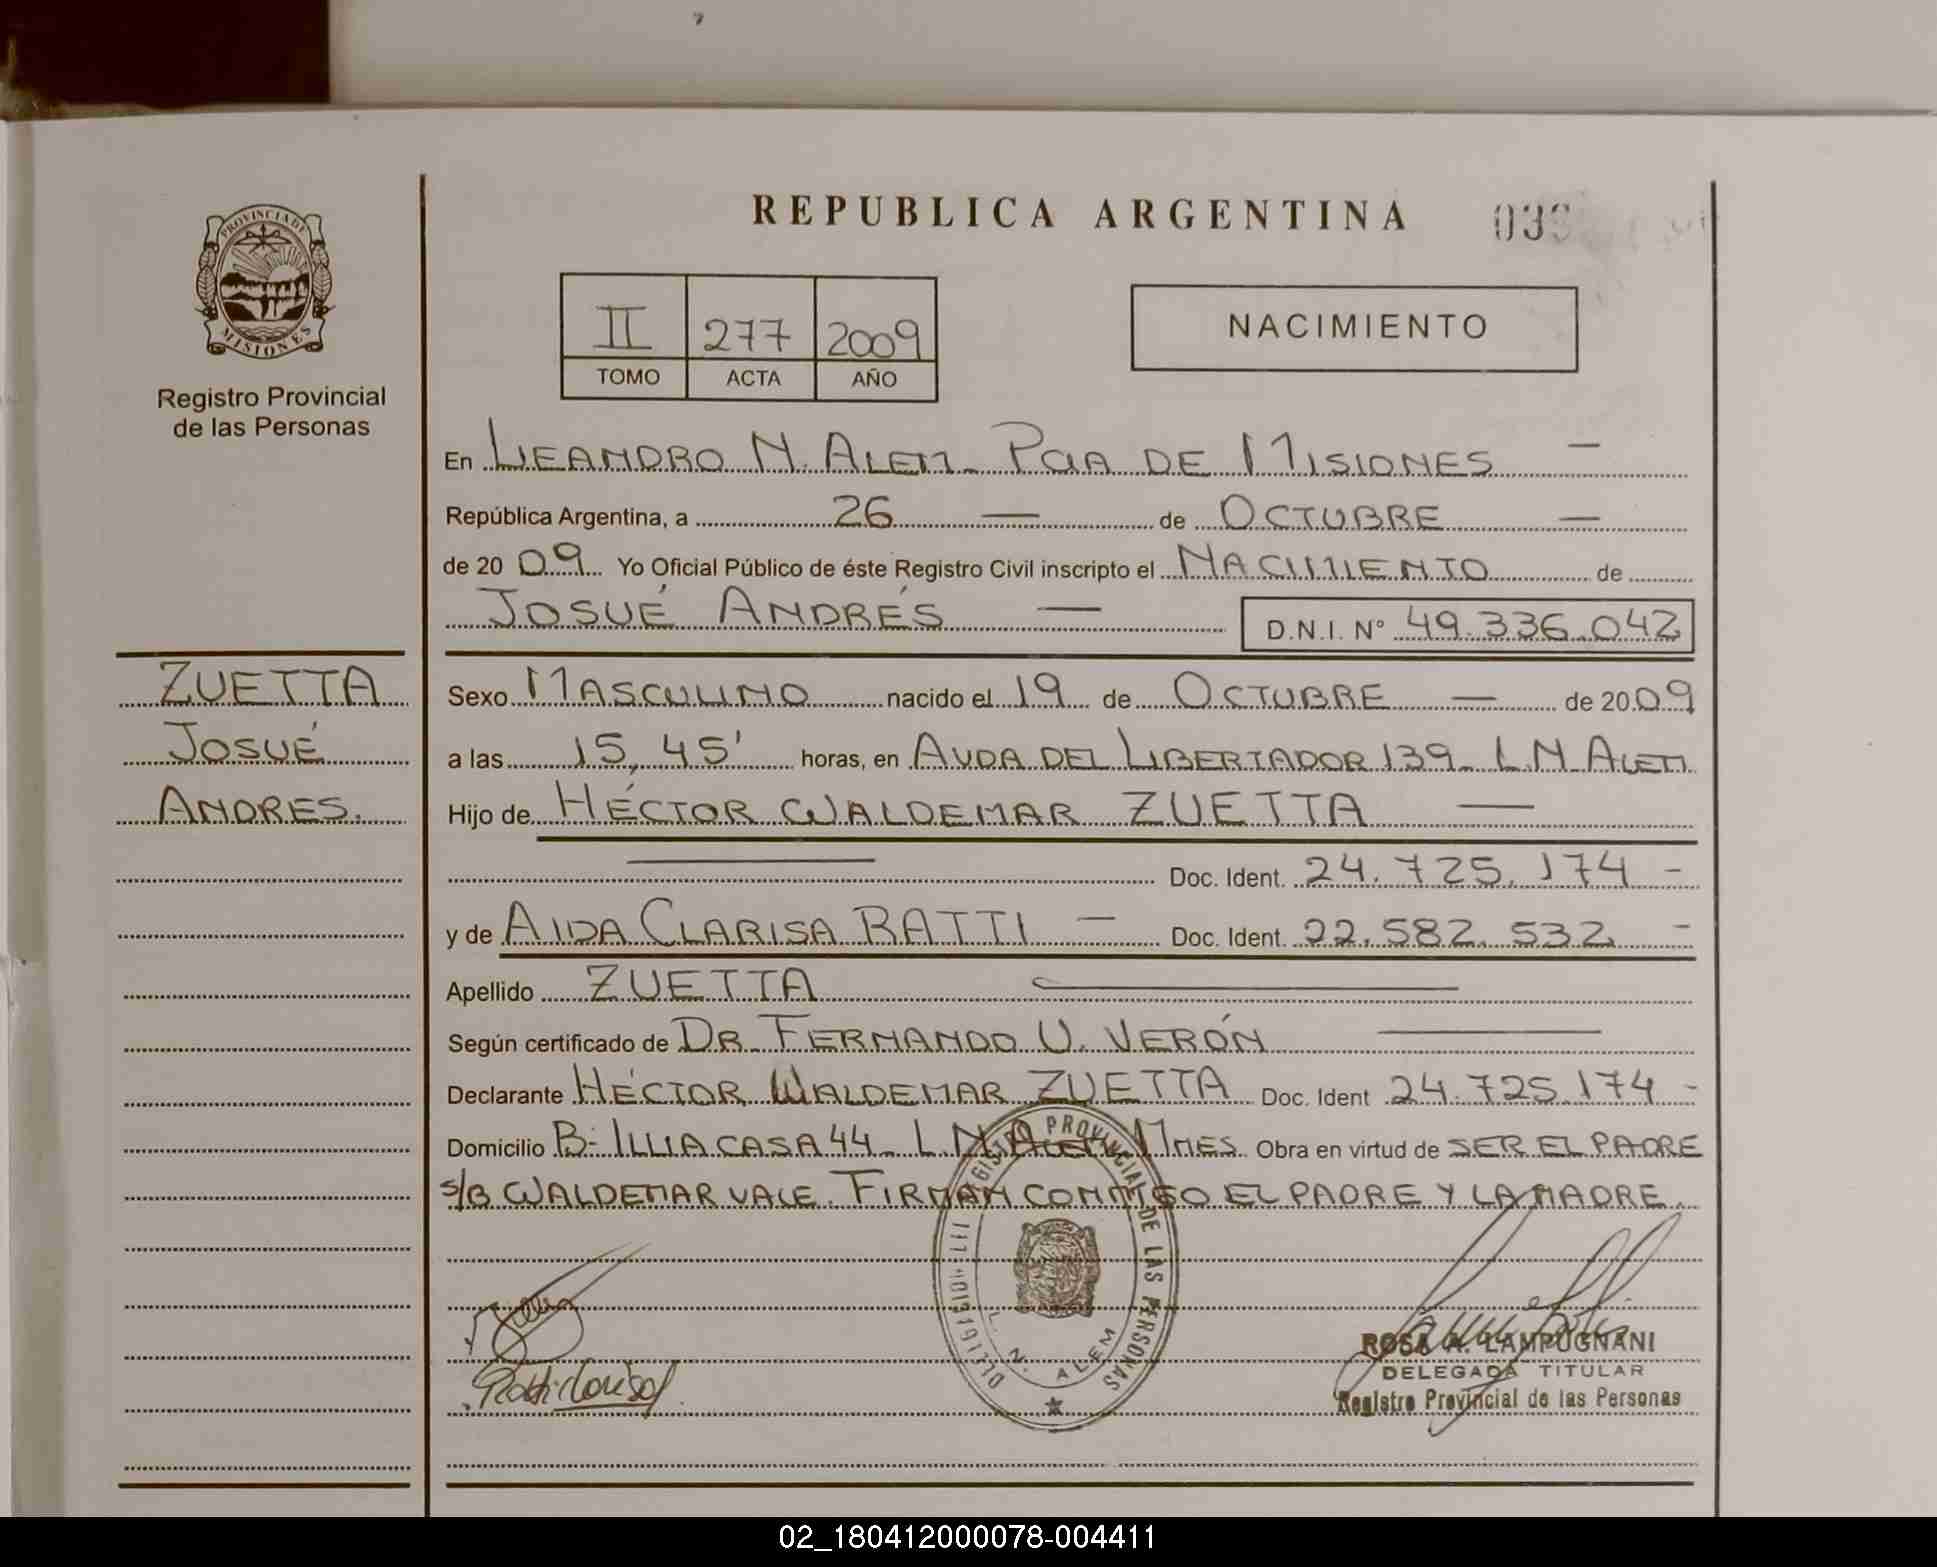 REPUBLICA ARGENTINA
PROVINCIA DE
MISIONES
Registro Provincial
de las Personas
II 277 2009
TOMO ACTA AÑO
NACIMIENTO
En LEANDRO N. ALEM - PCIA DE MISIONES —
República Argentina, a 26 — de OCTUBRE —
de 2009 Yo Oficial Público de éste Registro Civil inscripto el NACIMIENTO de
JOSUÉ ANDRÉS — D.N.I. N° 49.336.042
ZUETTA
JOSUÉ
ANDRES.
Sexo MASCULINO nacido el 19 de OCTUBRE — de 2009
a las 15,45' horas, en AVDA DEL LIBERTADOR 139 - L.N. ALEM
Hijo de HÉCTOR WALDEMAR ZUETTA —
— Doc. Ident. 24.725.174 -
y de AIDA CLARISA RATTI — Doc. Ident. 22.582.532 -
Apellido ZUETTA —
Según certificado de DR. FERNANDO U. VERÓN —
Declarante HÉCTOR WALDEMAR ZUETTA Doc. Ident 24.725.174 -
Domicilio B- ILLIA CASA 44 - L.N. ALEM MNES. Obra en virtud de SER EL PADRE
S/B WALDEMAR VALE. FIRMAN CONMIGO EL PADRE Y LA MADRE.
REGISTRO PROVINCIAL DE LAS PERSONAS
L. N. ALEM
Ratti Clarisa
ROSA A. LAMPUGNANI
DELEGADA TITULAR
Registro Provincial de las Personas
02_180412000078-004411